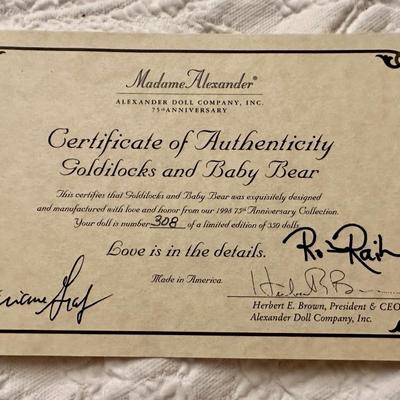 Madame Alexander®
ALEXANDER DOLL COMPANY, INC.
75th ANNIVERSARY
Certificate of Authenticity
Goldilocks and Baby Bear
This certifies that Goldilocks and Baby Bear was exquisitely designed
and manufactured with love and honor from our 1998 75th Anniversary Collection.
Your doll is number 308 of a limited edition of 350 dolls.
Love is in the details.
Made in America.
Herbert E. Brown, President & CEO
Alexander Doll Company, Inc.